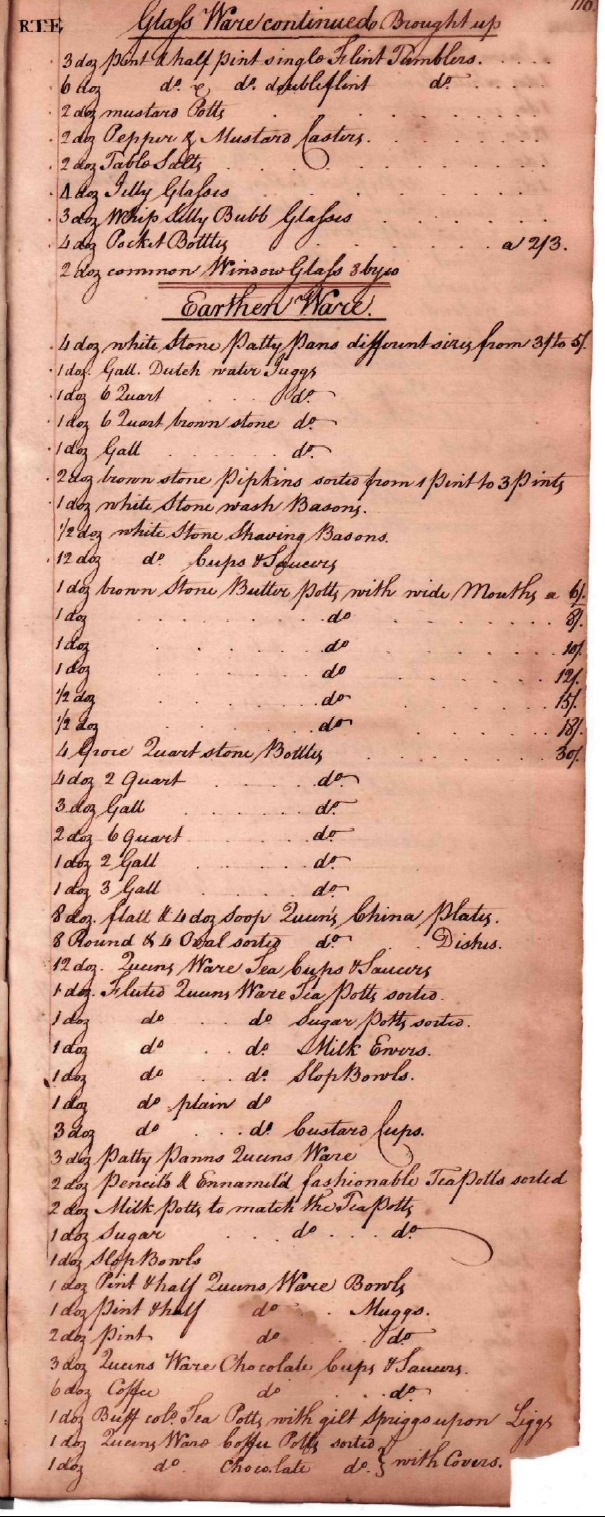 116.
RTE
Glass Ware continued Brought up
3 doz pint & half pint single Flint Tumblers.
6 doz do. & do. doubleflint do.
2 doz mustard Potts
2 doz Pepper & Mustard Casters.
2 doz Table Salts
4 doz Jilly Glasses
3 doz Whip Silly Bubb Glasses
4 doz Pocket Bottles a 2/3.
2 doz common Window Glass 8 by 10
Earthen Ware.
4 doz white Stone Patty Pans different sizes from 3/ to 5/.
1 doz. Gall. Dutch water Juggs
1 doz 6 Quart do.
1 doz 6 Quart brown stone do.
1 doz Gall do.
2 doz brown stone Pipkins sorted from 1 Pint to 3 Pints
1 doz white Stone wash Basons.
1/2 doz white Stone Shaving Basons.
12 doz do. Cups & Saucers
1 doz brown Stone Butter Potts with wide Mouths a 6/.
1 doz do 8/.
1 doz do 10/.
1 doz do 12/.
1/2 doz do 15/.
1/2 doz do 18/.
4 Groce Quart stone Bottles 30/.
4 doz 2 Quart do.
3 doz Gall do.
2 doz 6 Quart do.
1 doz 2 Gall do.
1 doz 3 Gall do.
8 doz. flatt & 4 doz Soop Queens China Plates.
8 Round & 4 Oval sorted do. Dishes.
12 doz. Queens Ware Tea Cups & Saucers
1 doz. Fluted Queens Ware Tea Potts sorted.
1 doz do do. Sugar Potts sorted.
1 doz do do. Milk Ewers.
1 doz do do. Slop Bowls.
1 doz do plain do
3 doz do do. Custard Cups.
3 doz Patty Panns Queens Ware
2 doz Pencil'd & Ennameld fashionable Tea Potts sorted
2 doz Milk Potts to match the Tea Potts
1 doz Sugar do do.
1 doz Slop Bowls
1 doz Pint & half Queens Ware Bowls
1 doz Pint & half do Muggs.
2 doz Pint do do
3 doz Queens Ware Chocolate Cups & Saucers.
6 doz Coffee do do.
1 doz Buff colo. Tea Potts with gilt Spriggs upon Liggs
1 doz Queens Ware Coffee Potts sorted
1 doz do Chocolate do. } with Covers.